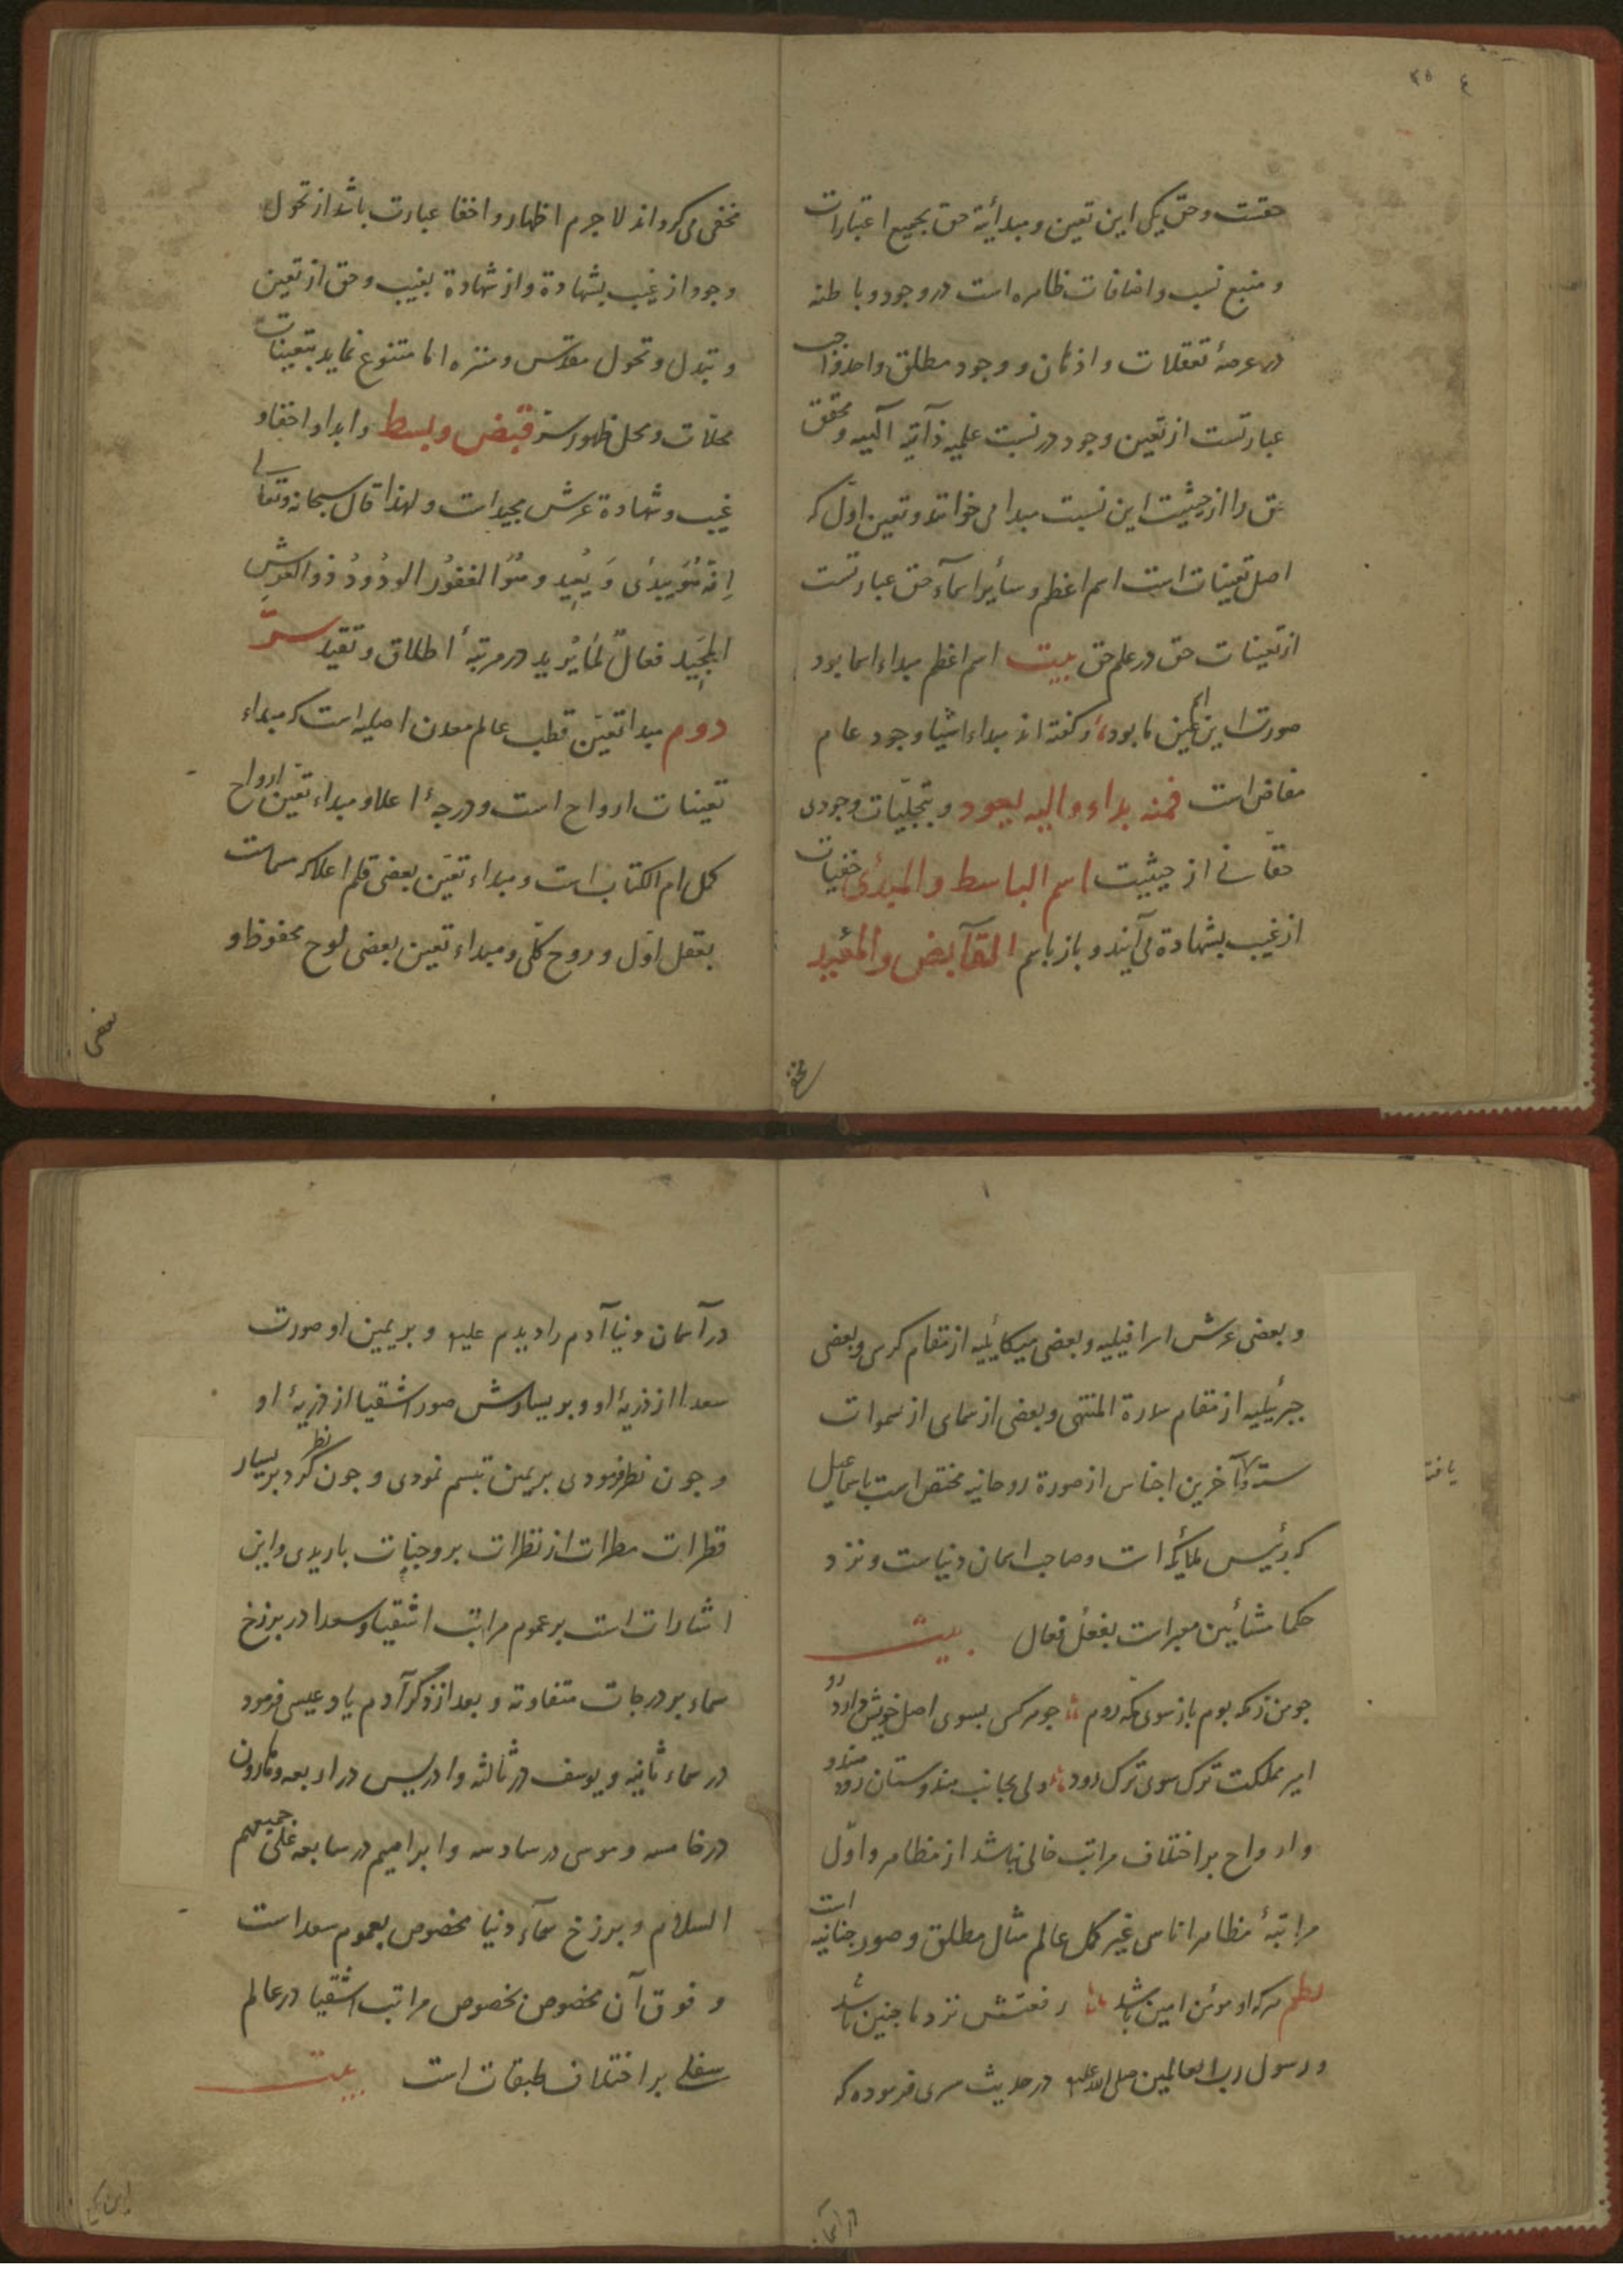 ۳۵ ع
حقست و حق یکی این تعین و مبدأیة حق بجمیع اعتبارات
و منبع نسب و اضافات ظاهره است در وجود و باطنه
در عرصهٔ تعقلات و اذهان و وجود مطلق واحد واجب
عبارتست از تعین وجود در نسبت علمیه ذآتیه آلهیه و محقق
حق را از حیثیت این نسبت مبدا می خوانند و تعین اوّل که
اصل تعینات است اسم اعظم و سأیر اسمآء حق عبارتست
از تعینات حق در علم حق بیت اسم اعظم مبداء اسما بود
صورت این اسم عین ما بود و گفته اند مبداء اشیا وجود عام
مفاض است فمنه بداء و الیه یعود و بتجلیّات وجودی
حقانی از حیثیت اسم الباسط و المبدئ خفیات
از غیب بشهادة می آیند و باز باسم القآبض و المعید
مخفی
مخفی می کرداند لاجرم اظهار و اخفا عبارت باشد از تحول
وجود از غیب بشهادة و از شهادة بغیب و حق از تعین
و تبدل و تحول مقدّس و منزه اما متنوع نماید بتعینات
محلات و محل ظهور سرّ قبض و بسط و ابدا و اخفا و
غیب و شهادة عرش مجید است و لهذا قال سبحانه و تعالی
اِنّه هُوَ یبدئ وَ یُعِید و هُوَ الغفوُر الودُودُ ذو العَرشِ
المجِیَد فعالٌ لمَا یُرید در مرتبهٔ اطلاق و تقید سرّ
دوم مبدا تعیّن قطب عالم معدن اصلیه است که مبداء
تعینات ارواح است و درجهٔ اعلا و مبداء تعین ارواح
کمل ام الکتاب است و مبداء تعیّن بعضی قلم اعلا که مسماست
بعقل اوّل و روح کلّی و مبداء تعین بعضی لوح محفوظ و
بعضی
و بعضی عرش اسرافیلیه و بعضی میکائیلیه از مقام کرسی و بعضی
جبرئیلیه از مقام سدرة المنتهی و بعضی از سمای از سموات
سته و آخرین اجناس از صورة روحانیه مختص است باسماعیل
که رئیس ملایکه است و صاحب اسمان دنیاست و نزد
یافت
حکما مشائین معبر است بفعل فعال بیت
جو من ز مکه بوم باز سوی مکه روم جو هر کس بسوی اصل خویش وارد رود
امیر مملکت ترک سوی ترک رود ولی بجانب هندوستان رود هندو
و ارواح بر اختلاف مراتب خالی نباشد از مظاهر و اوّل
مراتبهٔ مظاهر اناسی غیر کمل عالم مثال مطلق و صور جنانیه است
نظم هر که او مؤمن امین باشد رفعتش نزد ما جنین باشد
و رسول رب العالمین صلی الله علیه در حدیث مسری فرموده که
در آسمان
در آسمان دنیا آدم را دیدم علیه و بر یمین او صورت
سعدا از ذریهٔ او و بر یسارش صور اشقیا از ذریهٔ او
و جون نظر فرمودی بر یمین تبسم نمودی و جون نظر کرد بر یسار
قطرات مطرات از نظرات بر وجنات باریدی و این
اشارات است بر عموم مراتب اشقیا و سعدا در برزخ
سماء بر درجات متفاوته و بعد از ذکر آدم یاد عیسی فرمود
در سماء ثانیه و یوسف در ثالثه و ادریس در رابعه و هارون
در خامسه و موسی در سادسه و ابراهیم در سابعه علی جمیعهم
السلام و برزخ سمآء دنیا مخصوص بعموم سعداست
و فوق آن مخصوص بخصوص مراتب اشقیا در عالم
سفلی بر اختلاف طبقات است بیت